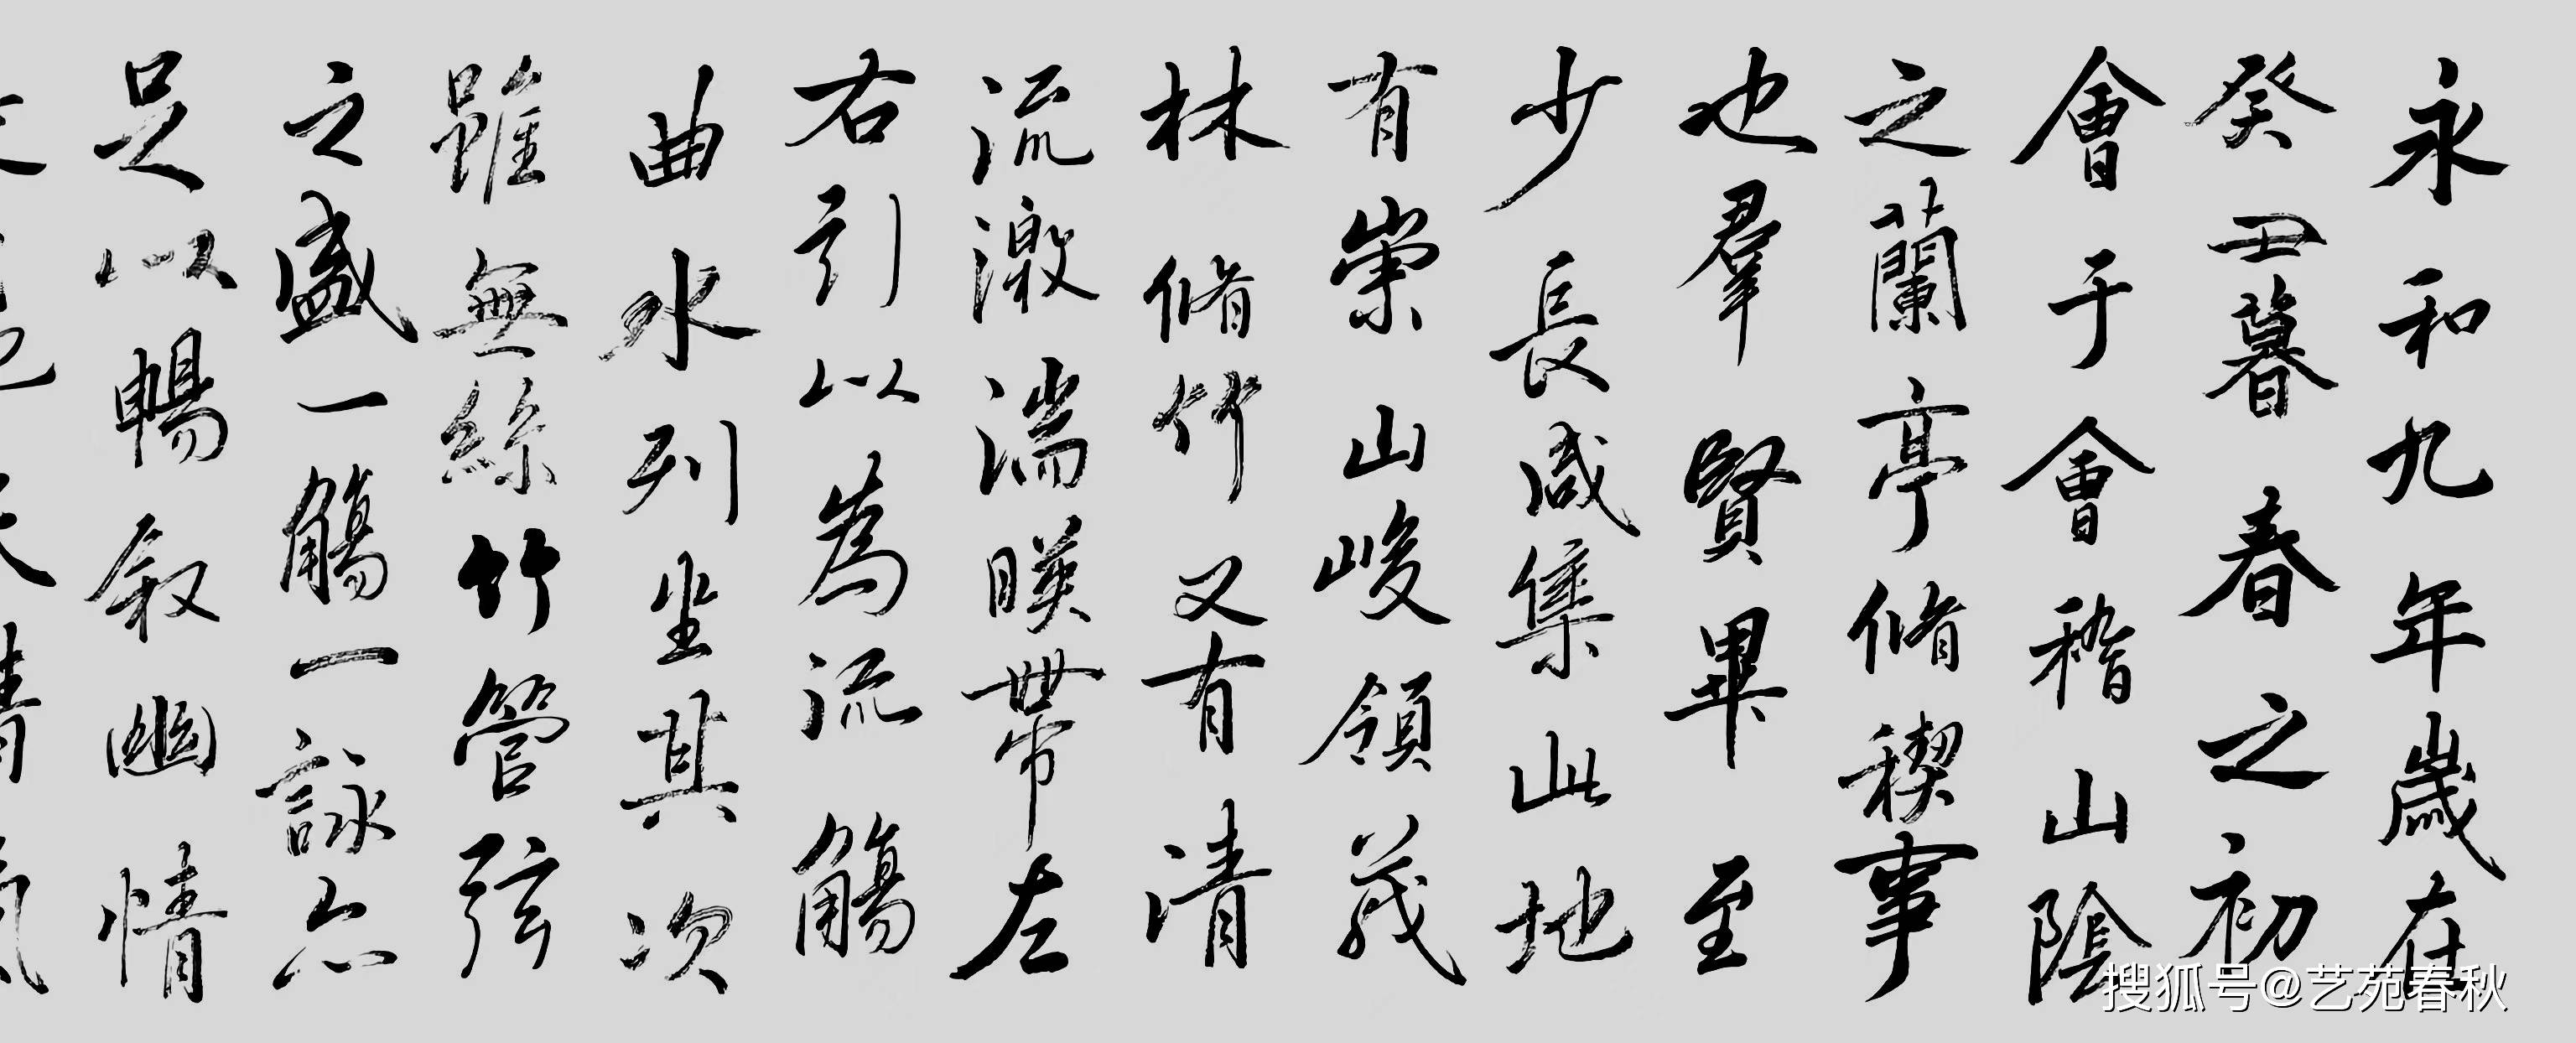 永和九年歲在
癸丑暮春之初
會于會稽山陰
之蘭亭脩稧事
也羣賢畢至
少長咸集此地
有崇山峻領茂
林脩竹又有清
流激湍暎帶左
右引以為流觴
曲水列坐其次
雖無絲竹管弦
之盛一觴一詠亦
足以暢叙幽情
搜狐号@艺苑春秋